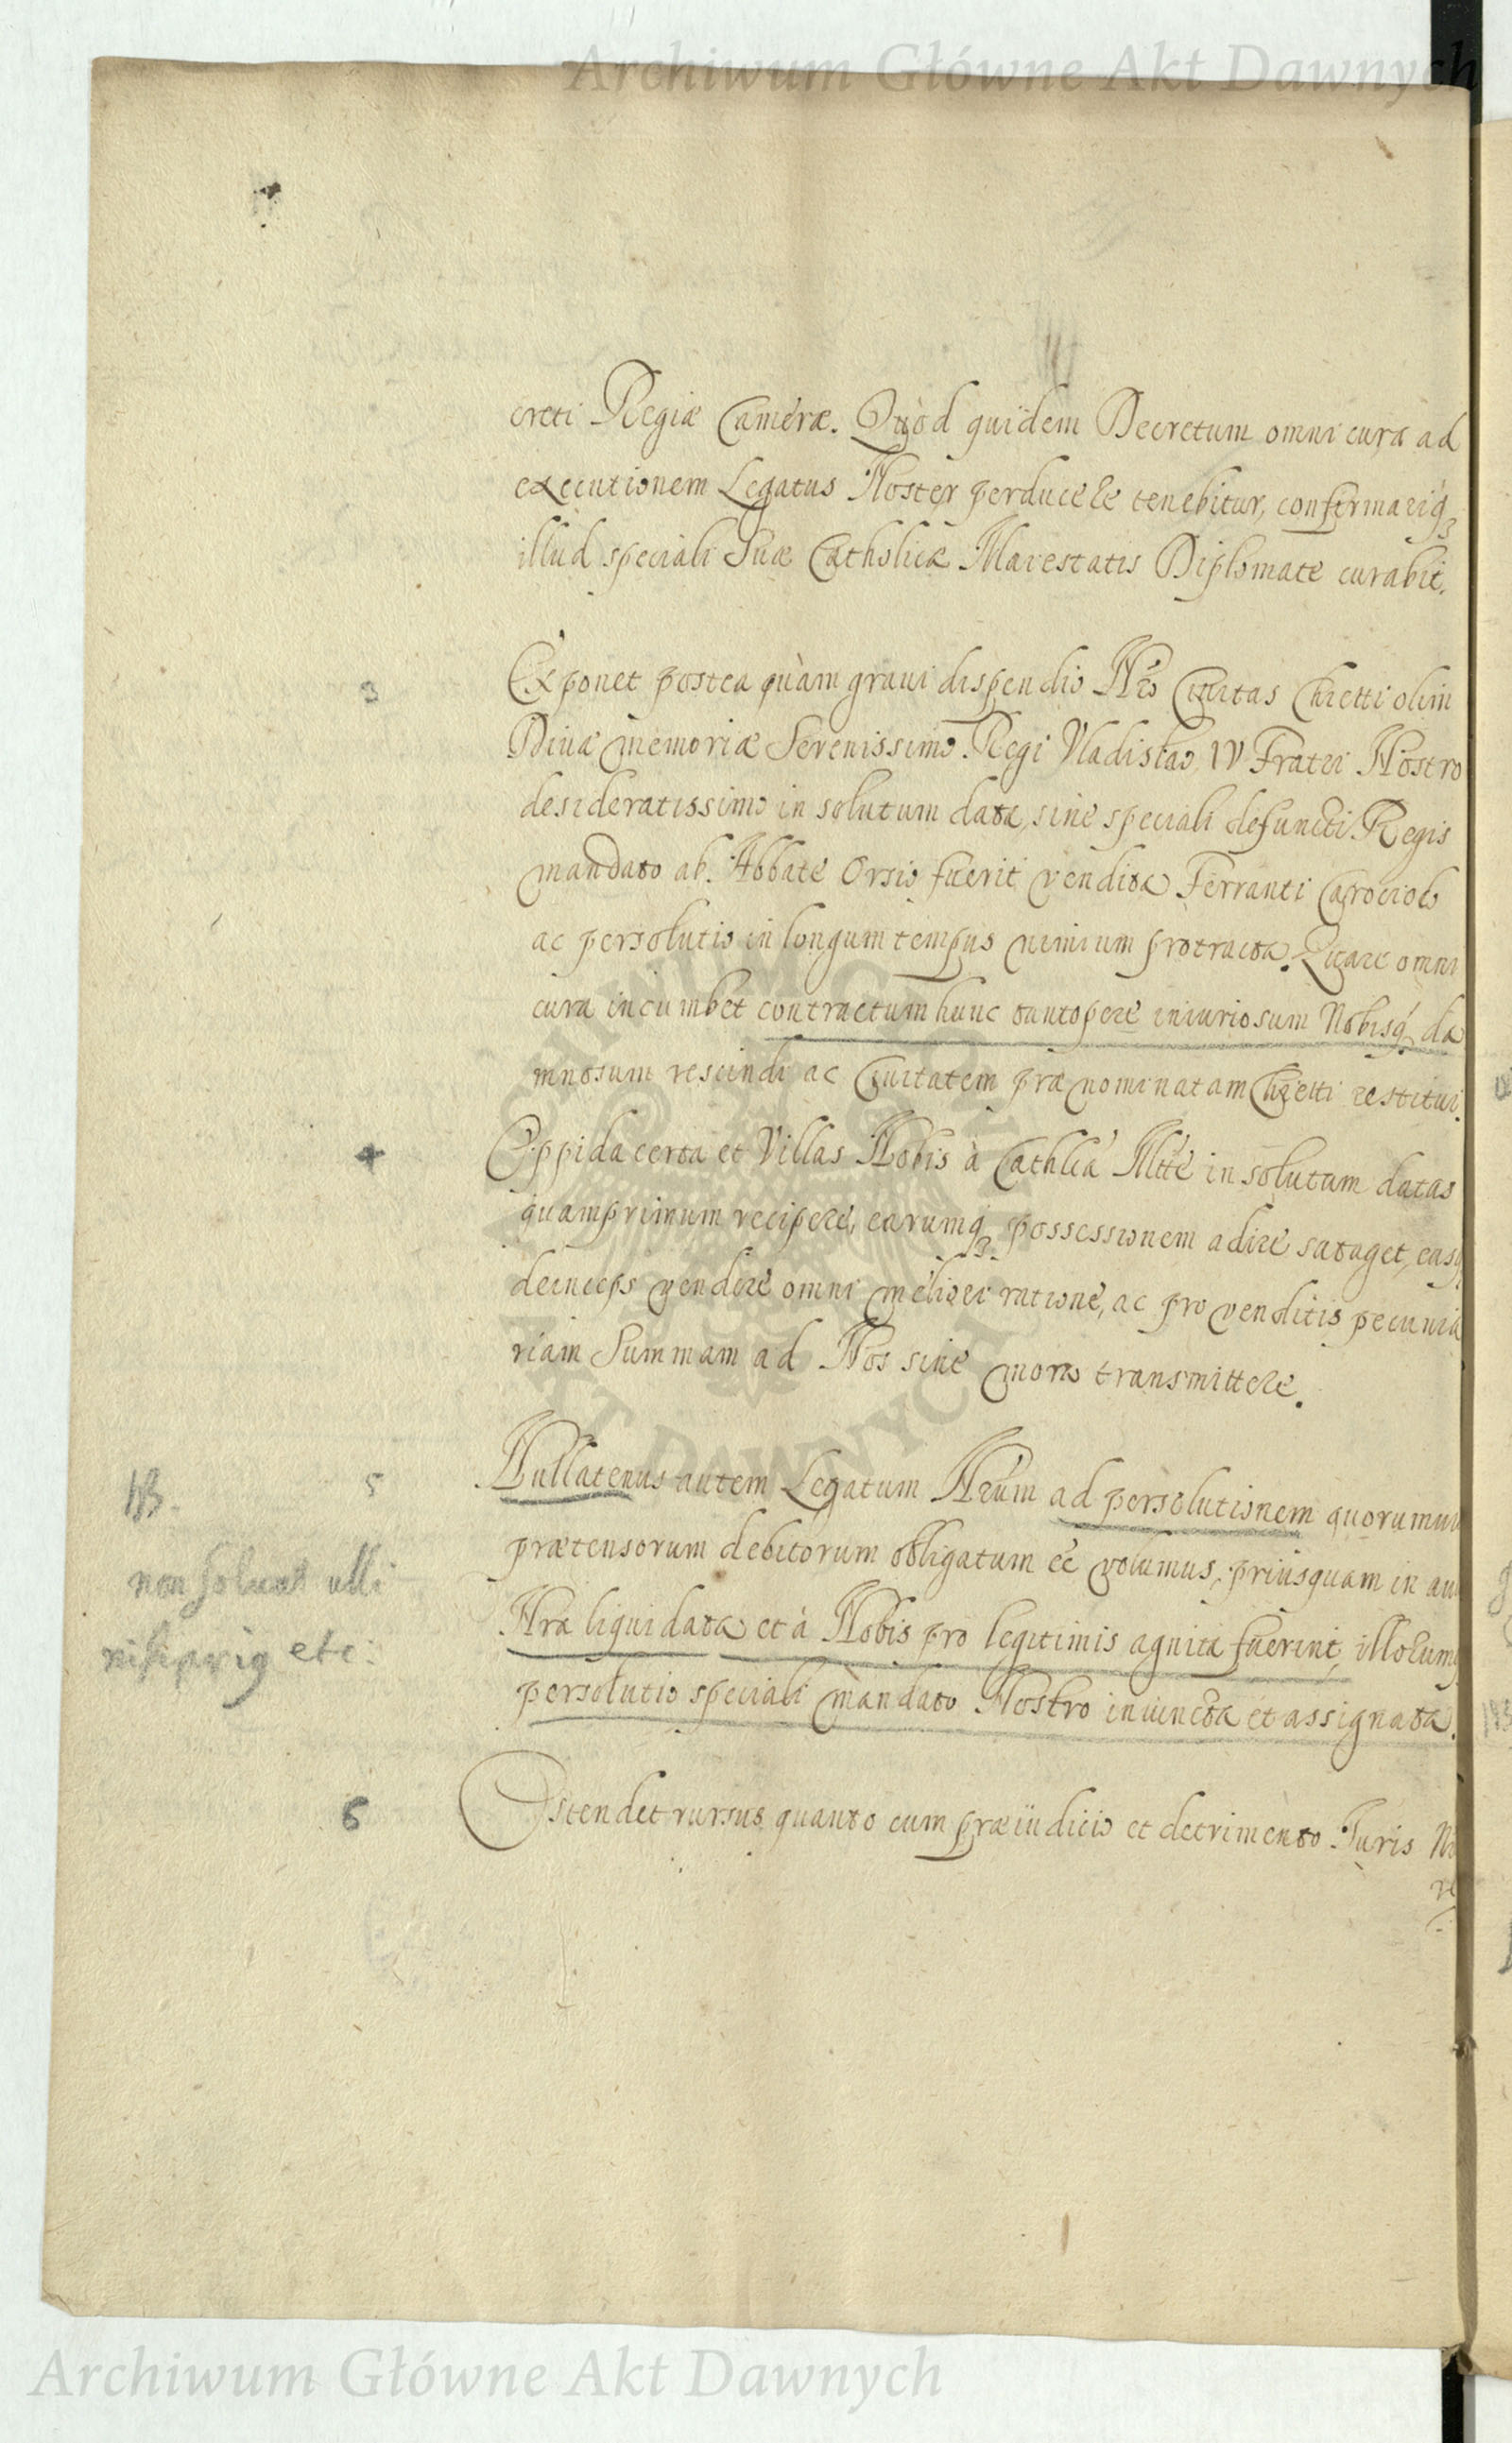 Archiwum Główne Akt Dawnych
creti Regiæ Cameræ. Quod quidem Decretum omni cura ad
executionem Legatus Noster perducere tenebitur, confirmariq3
illud speciali Suæ Catholicæ Maiestatis Diplomate curabit.
3
Exponet postea quàm graui dispendio Nro Ciuitas Chietti olim
Diuæ memoriæ Serenissimo Regi Vladislao IV Fratri Nostro
desideratissimo in solutum data, sine speciali defuncti Regis
mandato ab Abbate Orsio fuerit vendita Ferranti
ac persolutio in longum tempus nimium protracta. Quare omni
cura incumbet contractum hunc tantopere iniuriosum Nobisq3 da
mnosum rescindi ac Ciuitatem prænominatam Chietti restitui.
4
Oppida certa et Villas Nobis à Cathlca Mtte in solutum datas
quamprimum recipere, earumq3 possessionem adire sataget, easq
deinceps vendere omni meliori ratione, ac pro venditis pecunia
riam Summam ad Nos sine mora transmittere.
NB.
5
Nullatenus autem Legatum Nrum ad persolutionem quorumuis
prætensorum debitorum obligatum eē volumus, priusquam in aula
non soluat ulli
Nra liquidata et à Nobis pro legitimis agnita fuerint, illorumq
nisi prius etc:
persolutio speciali mandato Nostro iniuncta et assignata.
6
Ostendet rursus quanto cum præiudicio et detrimento Juris No
Archiwum Główne Akt Dawnych